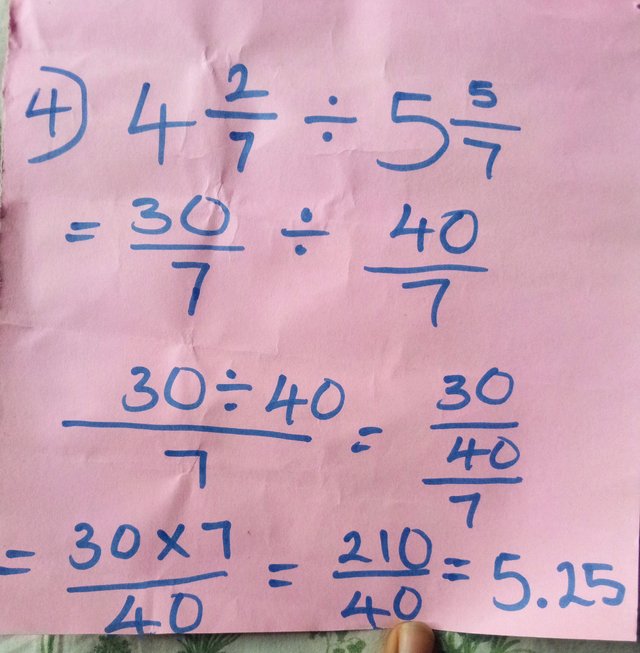 4) 4 2/7 ÷ 5 5/7
= 30/7 ÷ 40/7
(30 ÷ 40)/7 = 30/(40/7)
= (30 × 7)/40 = 210/40 = 5.25